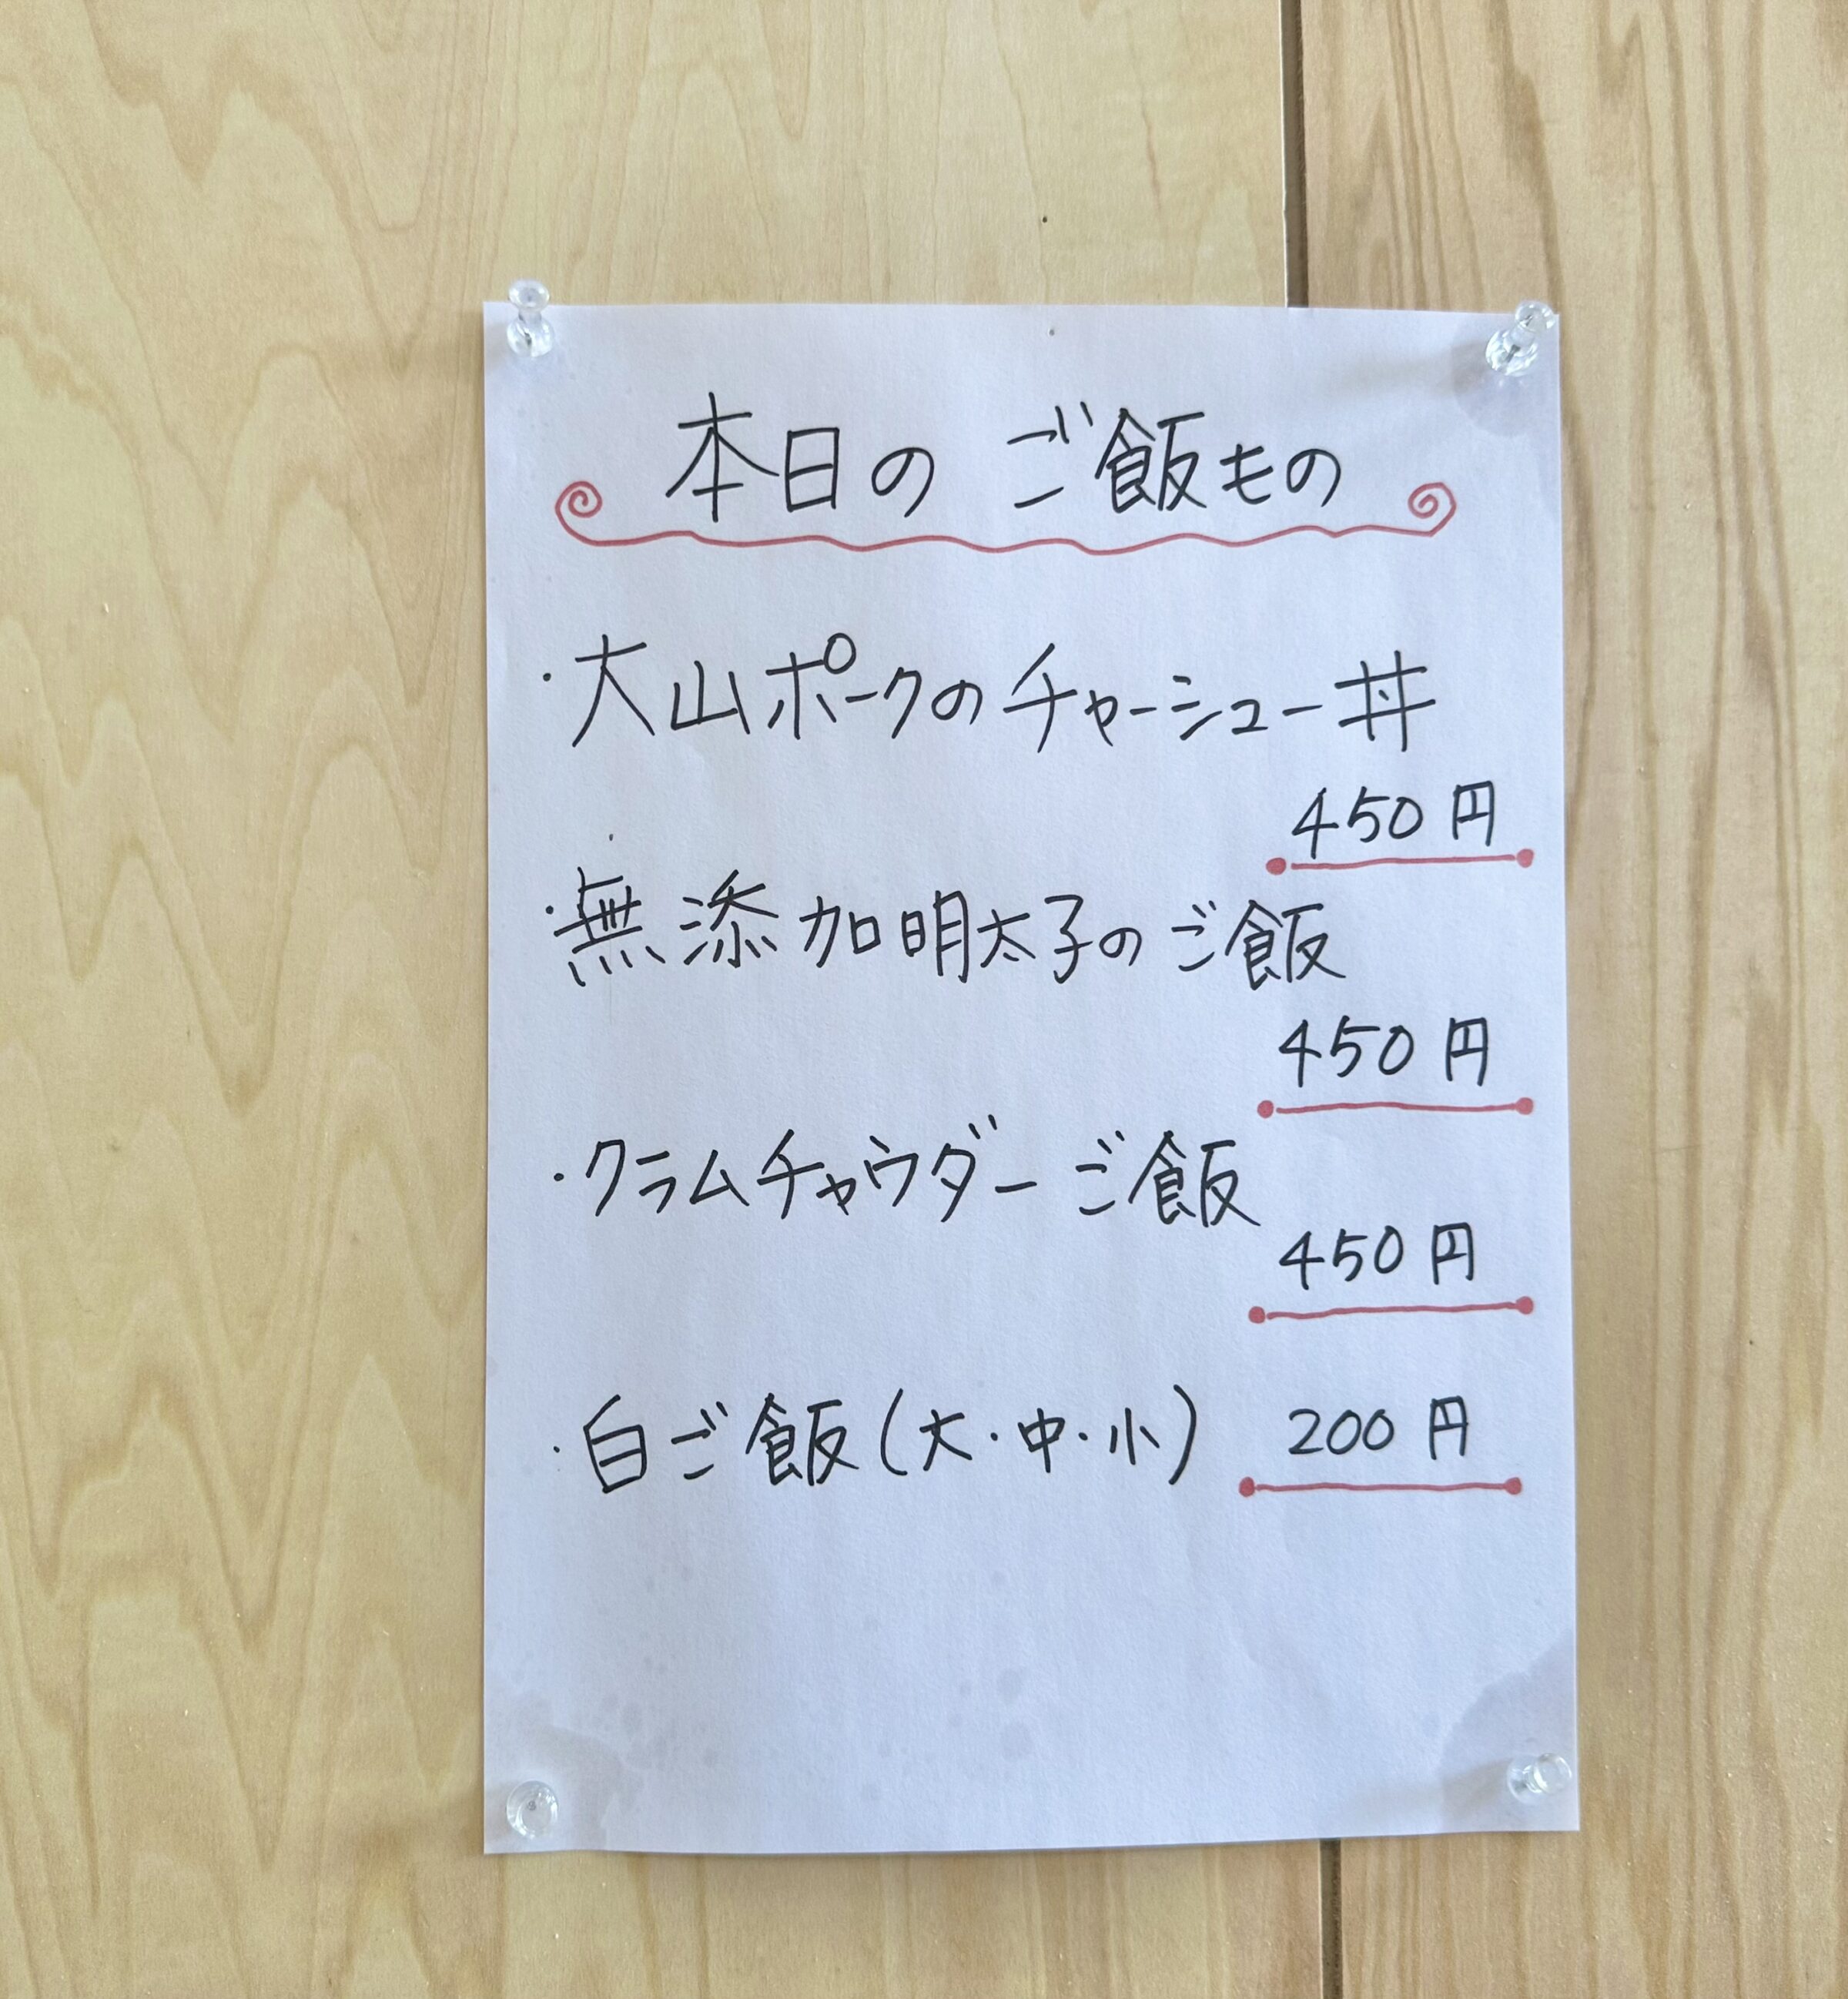 本日の ご飯もの
・大山ポークのチャーシュー丼
450円
・無添加明太子のご飯
450円
・クラムチャウダーご飯
450円
・白ご飯(大・中・小) 200円